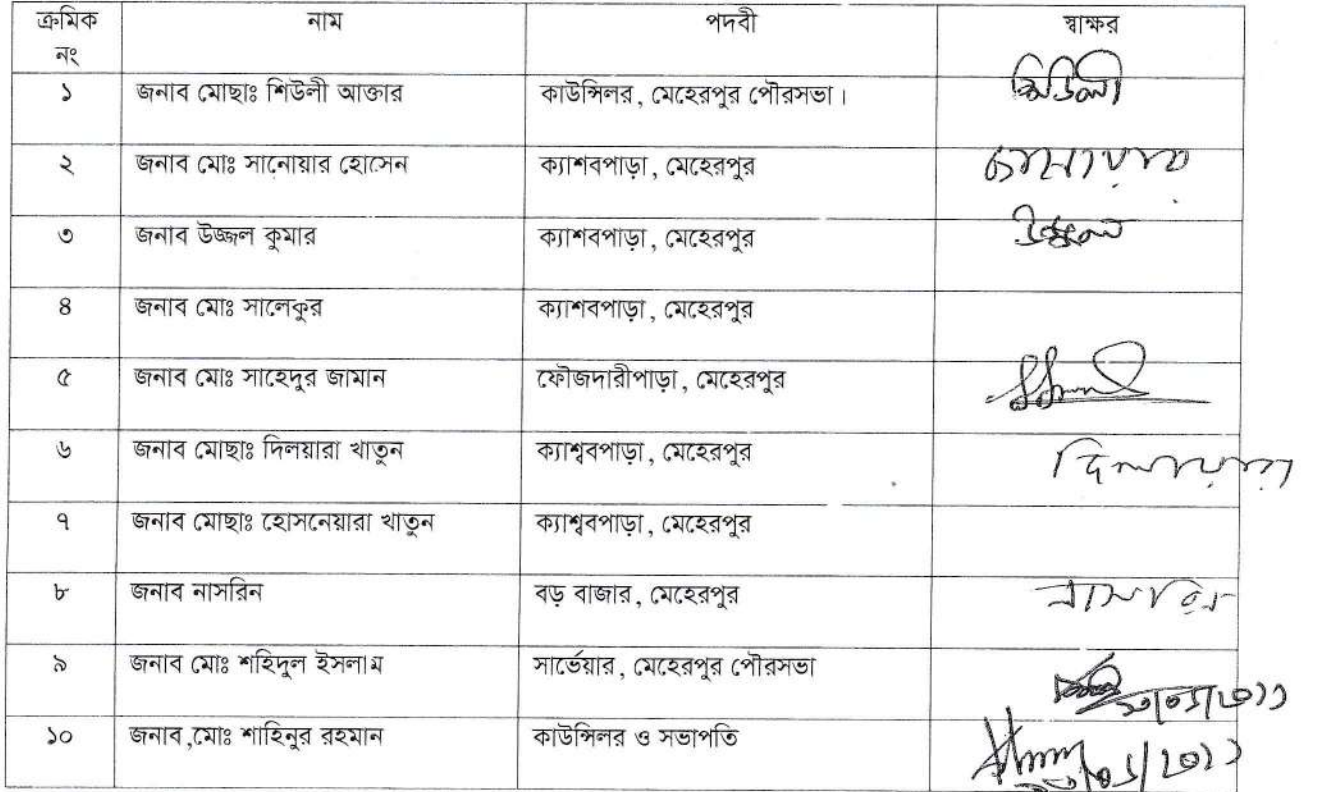 ক্রমিক নং নাম পদবী স্বাক্ষর
১ জনাব মোছাঃ শিউলী আক্তার কাউন্সিলর, মেহেরপুর পৌরসভা। শিউলী
২ জনাব মোঃ সানোয়ার হোসেন ক্যাশবপাড়া, মেহেরপুর সানোয়ার
৩ জনাব উজ্জল কুমার ক্যাশবপাড়া, মেহেরপুর উজ্জল
৪ জনাব মোঃ সালেকুর ক্যাশবপাড়া, মেহেরপুর
৫ জনাব মোঃ সাহেদুর জামান ফৌজদারীপাড়া, মেহেরপুর
৬ জনাব মোছাঃ দিলয়ারা খাতুন ক্যাশ্ববপাড়া, মেহেরপুর দিলয়ারা
৭ জনাব মোছাঃ হোসনেয়ারা খাতুন ক্যাশ্ববপাড়া, মেহেরপুর
৮ জনাব নাসরিন বড় বাজার, মেহেরপুর নাসরিন
৯ জনাব মোঃ শহিদুল ইসলাম সার্ভেয়ার, মেহেরপুর পৌরসভা
১০ জনাব,মোঃ শাহিনুর রহমান কাউন্সিলর ও সভাপতি